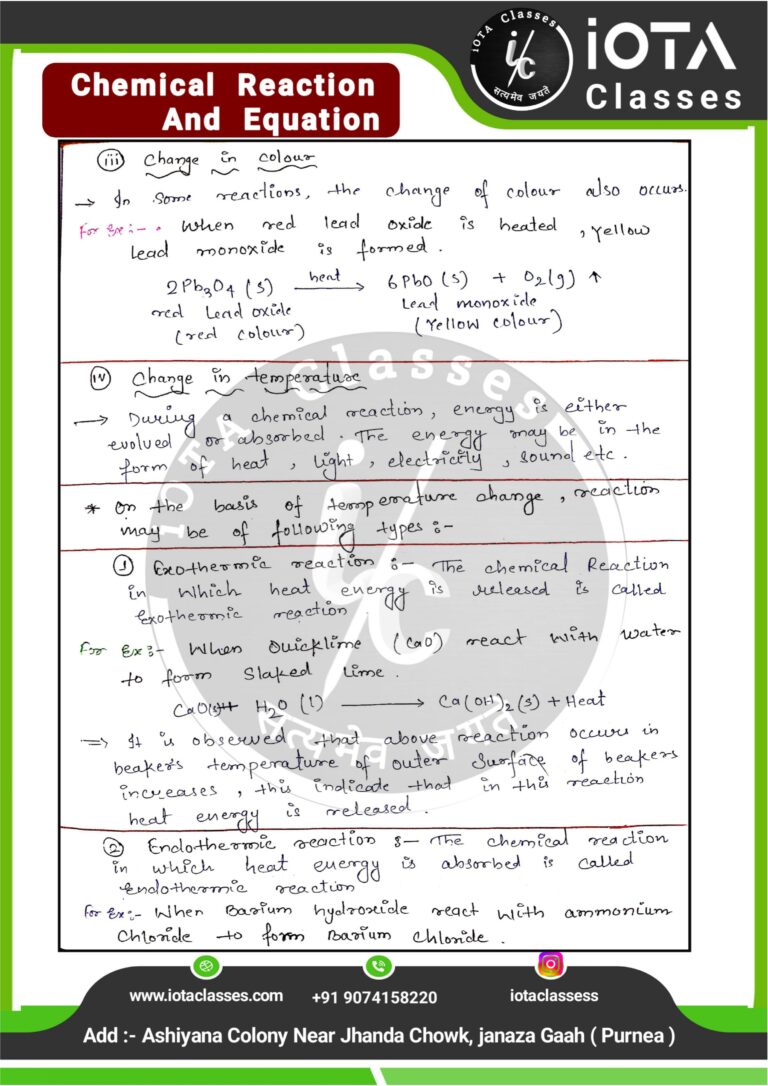 iOTA Classes
i/c
सत्यमेव जयते
iOTA
Classes
Chemical Reaction
And Equation
(iii) Change in colour
→ In some reactions, the change of colour also occurs.
For Ex:- . When red lead oxide is heated, yellow
lead monoxide is formed.
2Pb3O4 (s) heat → 6PbO (s) + O2(g) ↑
red Lead oxide Lead monoxide
(red colour) (Yellow colour)
(iv) Change in temperature
→ During a chemical reaction, energy is either
evolved or absorbed. The energy may be in the
form of heat, light, electricity, sound etc.
* On the basis of temperature change, reaction
may be of following types :-
(1) Exothermic reaction :- The chemical Reaction
in which heat energy is released is called
Exothermic reaction.
For Ex:- When Quicklime (CaO) react with water
to form Slaked lime.
CaO(s)+ H2O (l) → Ca(OH)2 (s) + Heat
⇒ It is observed that above reaction occurs in
beakers temperature of outer surface of beakers
increases, this indicate that in this reaction
heat energy is released.
(2) Endothermic reaction :- The chemical reaction
in which heat energy is absorbed is called
Endothermic reaction
For Ex:- When Barium hydroxide react with ammonium
Chloride to form Barium Chloride.
iOTA Classes
i/c
सत्यमेव जयते
www.iotaclasses.com +91 9074158220 iotaclassess
Add :- Ashiyana Colony Near Jhanda Chowk, janaza Gaah ( Purnea )